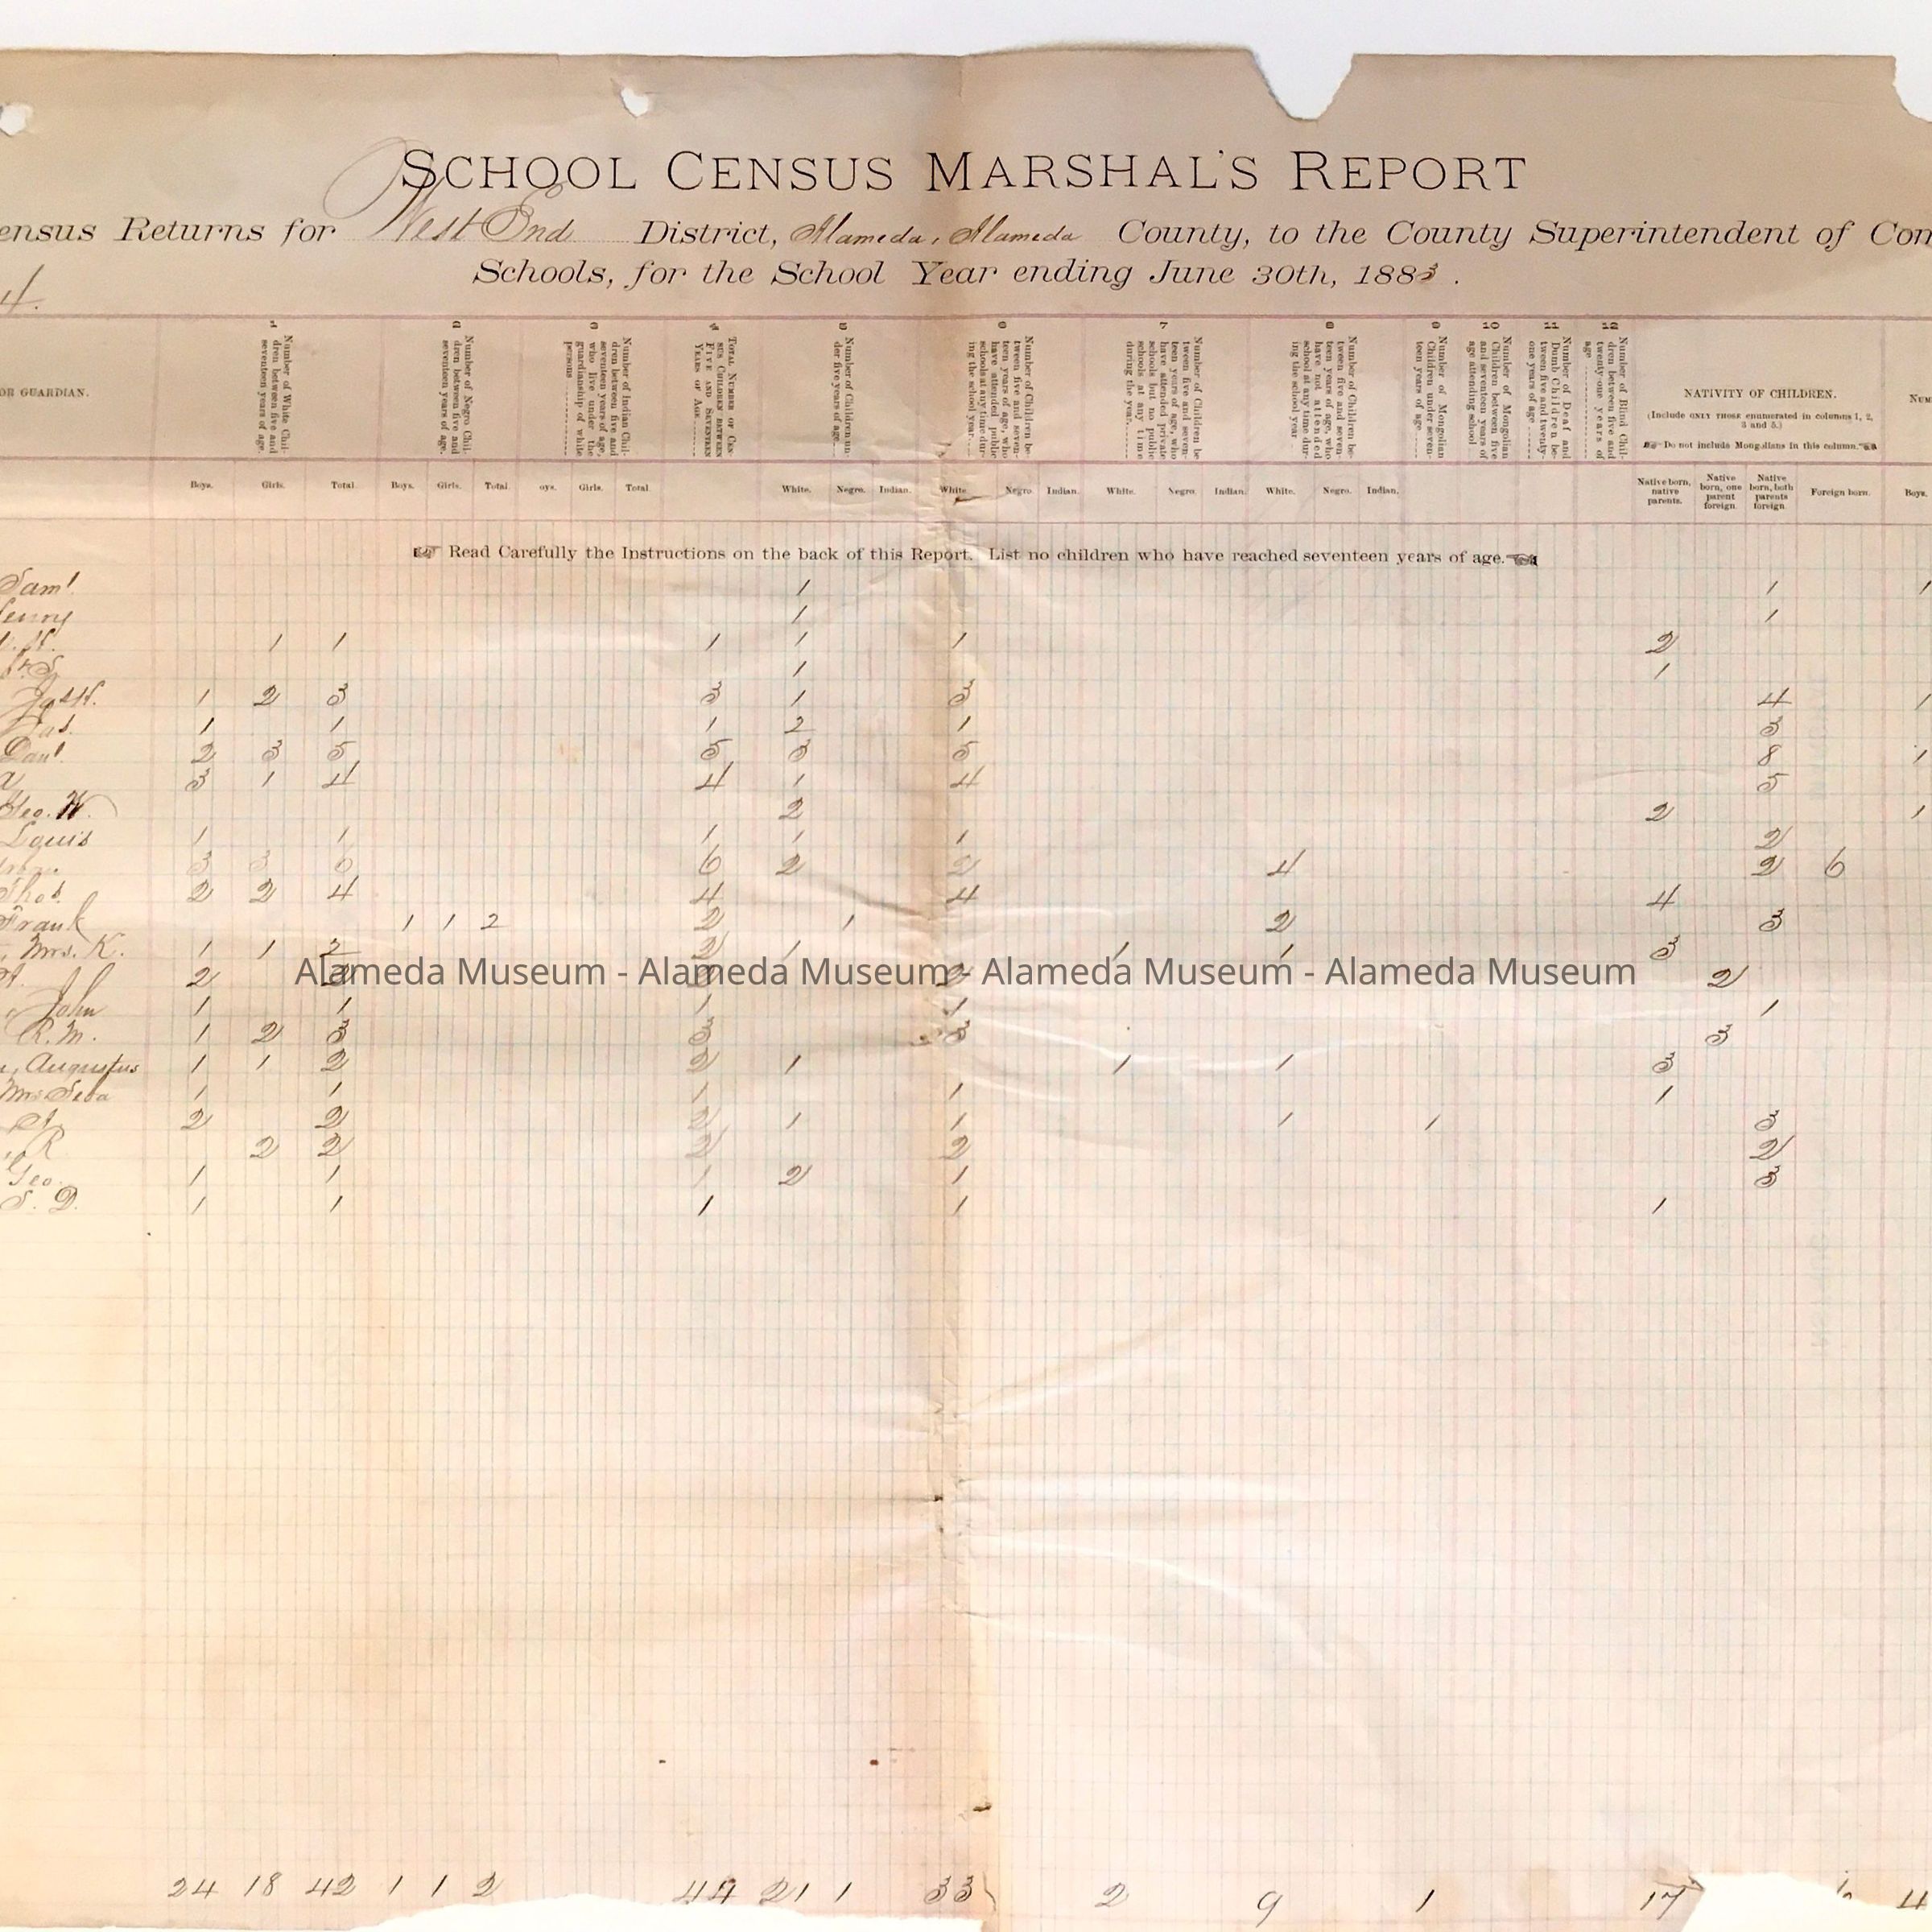 SCHOOL CENSUS MARSHAL'S REPORT
ensus Returns for West End District, Alameda, Alameda County, to the County Superintendent of Com
4.
Schools, for the School Year ending June 30th, 1883.
OR GUARDIAN.
1 Number of White Children between five and seventeen years of age.
2 Number of Negro Children between five and seventeen years of age.
3 Number of Indian Children between five and seventeen years of age, who live under the guardianship of white persons
4 TOTAL NUMBER OF CENSUS CHILDREN BETWEEN FIVE AND SEVENTEEN YEARS OF AGE
5 Number of Children under five years of age.
6 Number of Children between five and seventeen years of age, who have attended public schools at any time during the school year.
7 Number of Children between five and seventeen years of age, who have attended private schools but no public schools at any time during the year.
8 Number of Children between five and seventeen years of age, who have not attended school at any time during the school year
9 Number of Mongolian Children under seventeen years of age
10 Number of Mongolian Children between five and seventeen years of age attending school
11 Number of Deaf and Dumb Children between five and twenty-one years of age
12 Number of Blind Children between five and twenty-one years of age
NATIVITY OF CHILDREN.
(Include ONLY THOSE enumerated in columns 1, 2, 3 and 5.)
Do not include Mongolians in this column.
NUM
Boys. Girls. Total. Boys. Girls. Total. oys. Girls. Total. White. Negro. Indian. White. Negro. Indian. White. Negro. Indian. White. Negro. Indian. Native born, native parents. Native born, one parent foreign. Native born, both parents foreign. Foreign born. Boys.
Read Carefully the Instructions on the back of this Report. List no children who have reached seventeen years of age.
Saml. 1 1 1
enry 1 1
1 1 1 1 1 2
1 1
Jas H. 1 2 3 3 1 3 4 1
Jas. 1 1 1 2 1 3
Danl. 2 3 5 5 3 5 8 1
3 1 4 4 1 4 5
Geo. W. 2 2 1
Louis 1 1 1 1 1 2
3 3 6 6 2 2 4 2 6
Thos. 2 2 4 4 4 4
Frank 1 1 2 2 1 2 3
, Mrs. K. 1 1 2 2 1 1 1 3
Alameda Museum - Alameda Museum - Alameda Museum - Alameda Museum
2 2 2 2 2
, John 1 1 1 1 1
R. M. 1 2 3 3 3 3
, Augustus 1 1 2 2 1 1 1 3
Mrs 1 1 1 1 1
2 2 2 1 1 1 1 3
, R 2 2 2 2 2
Geo. 1 1 1 2 1 3
S. D. 1 1 1 1 1
24 18 42 1 1 2 44 21 1 33 2 9 1 17 4